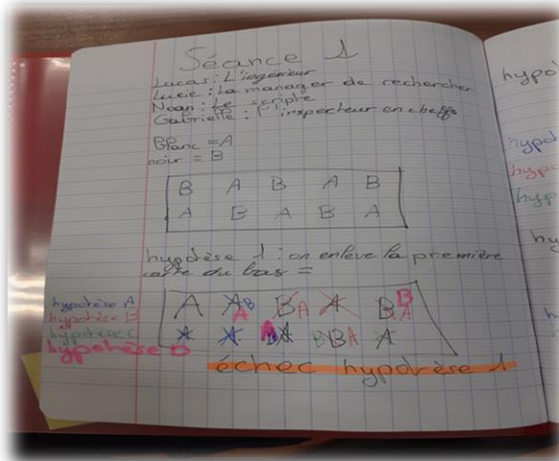 Séance 1
Lucas : L'ingénieur
Lucie : La manager de rechercher
Noan : Le scripte
Gabrielle : l'inspecteur en cheffe
Blanc = A
noir = B
B A B A B
A B A B A
hypotèse 1 : on enlève la première
carte du bas =
hypotèse A
hypotèse B
hypotèse C
hypotèse D
A A B B A A B B A
A B A
échec hypotèse 1
hypot
hypot
hypo
hyp
hy